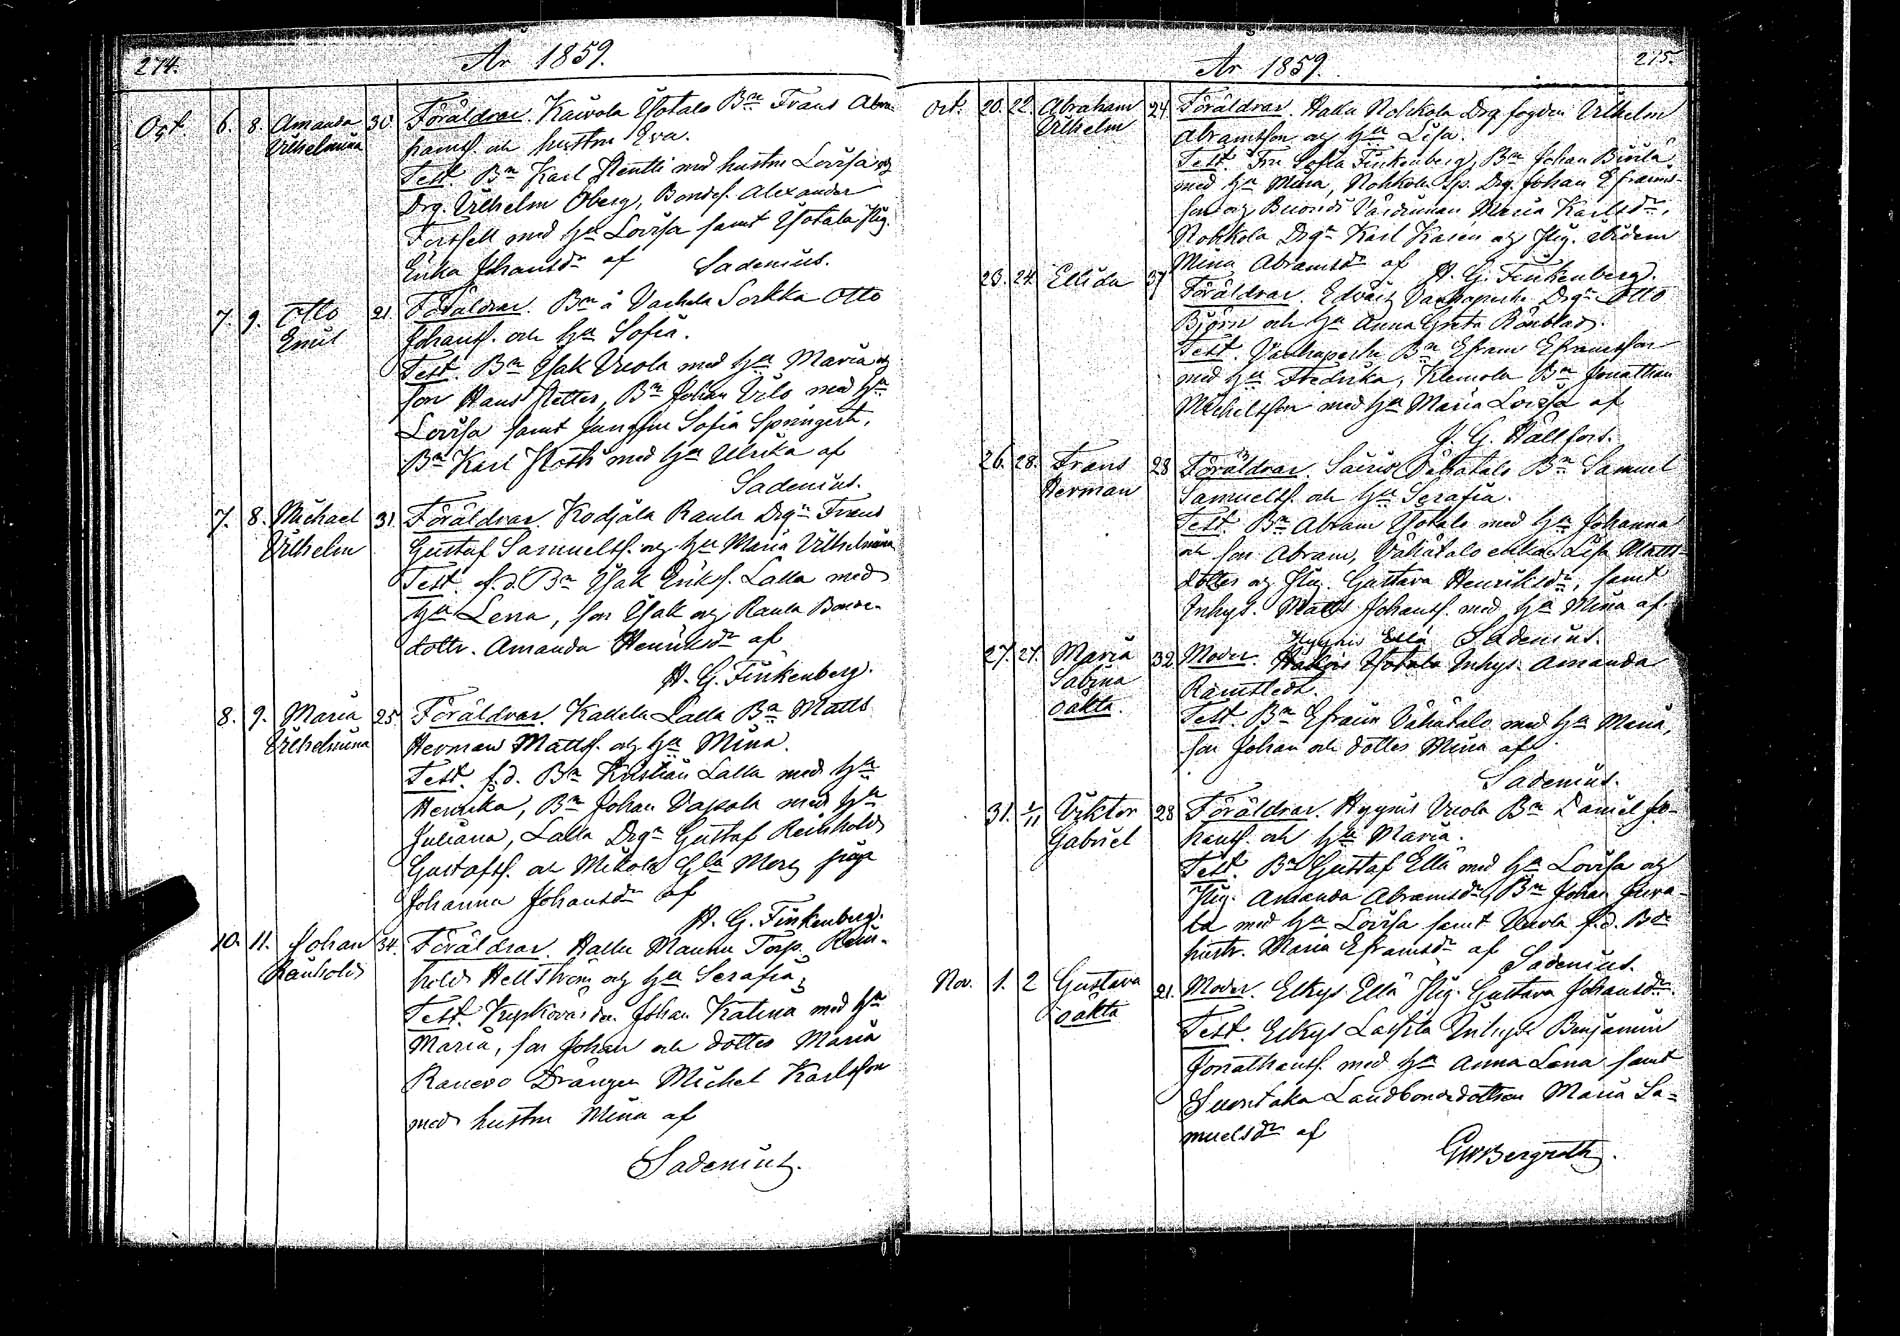 274.
År 1859.
Oct. 6. 8. Amanda Vilhelmina 30 Föräldrar. Kaivola Ylotalo Bn Frans Abra-
hamsf. och hustru Eva.
Test. Bn Karl Rentti med hustru Lovisa og
Drg. Vilhelm Öberg, Bondes. Alexander
Fortsell med hu Lovisa samt Ylotalo Pig.
Erika Johansdr af Sadenius.
7. 9. Otto Emil 21. Föräldrar. Bn å Sorkka Otto
Johansf. och hu Sofia.
Test. Bn Isak Uvola med hu Maria og
son Hans Petter, Bn Johan Vilo med hu
Lovisa samt Jungfru Sofia Springert,
Bn Karl med hu Ulrika af
Sadenius.
7. 8. Michael Vilhelm 31. Föräldrar. Kodjala Raula Drgn Frans
Gustaf Samuelsf. og hu Maria Vilhelmina
Test. f.d. Bn Isak Eriksf. Lalla med
hu Lena, son Isak og Raula Bonde-
dottr. Amanda Henriksdr af
H. G. Finkenberg.
8. 9. Maria Vilhelmina 25 Föräldrar. Kallela Lalla Bn Matts
Herman Mattsf. og hu Mina.
Test. f.d. Bn Kristian Lalla med hu
Henrika, Bn Johan Vapola med hu
Juliana, Lalla Drgn Gustaf Reinhold
Gustafsf. och Mikola
Johanna Johansdr af
H. G. Finkenberg.
10. 11. Johan Reinhold 34. Föräldrar. Hallu Mannu Torp. Rein-
hold Hellström og hu Serafia,
Test. Johan Katina med hu
Maria, son Johan och dotter Maria
Ranevo Drängen Michel Karlsson
med hustru Mina af
Sadenius.
275.
År 1859.
Oct. 20. 22. Abraham Vilhelm 24 Föräldrar. Hallu Nohkola Drg fogden Vilhelm
Abramsson og hu Lisa.
Test. Fru Sofia Finkenberg, Bn Johan Birilä
med hu Mina, Nohkola Sp. Drg. Johan Eframs-
son og Maria Karlsdr,
Nohkola Drgn Karl Kasén og Pig. ibidem
Mina Abramsdr af H. G. Finkenberg.
23. 24. Ellida 37 Föräldrar. Vanhapirti Drgn Otto
Björn och hu Anna Greta Rönblad.
Test. Vanhapirti Bn Efram Eframsson
med hu Fredrika, Klemola Bn Jonathan
Michelsson med hu Maria Lovisa af
J. G. Hällfors.
26. 28. Frans Herman 28 Föräldrar. Vähätalo Bn Samuel
Samuelsf. och hu Serafia.
Test. Bn Abram Ylotalo med hu Johanna
och son Abram, Vähätalo enkan Lisa Matts-
dotter og Pig. Gustava Henriksdr, samt
Inhys. Matts Johansf. med hu Mina af
Sadenius.
27. 27. Maria Sabina oäkta. 32 Moder. Hyynis Ellä Ylotalo Inhys. Amanda
Ramstedt.
Test. Bn Efraim Vähätalo med hu Maria,
son Johan och dotter Mina af
Sadenius.
31. 1/11 Viktor Gabriel 28 Föräldrar. Hyynis Uvola Bn Daniel Jo-
hansf. och hu Maria.
Test. Bn Gustaf Ellä med hu Lovisa og
Pig. Amanda Abramsdr, Bn Johan Juva-
la med hu Lovisa samt Uvola f.d. Bde
hustr. Maria Eframsdr af Sadenius.
Nov. 1. 2 Gustava oäkta 21. Moder. Elkys Ellä Pig. Gustava Johansdr.
Test. Elkys Laisila Inhyse Benjamin
Jonathansf. med hu Anna Lena samt
Suontaka Landbondedottren Maria Sa-
muelsdr af
GWBergroth.